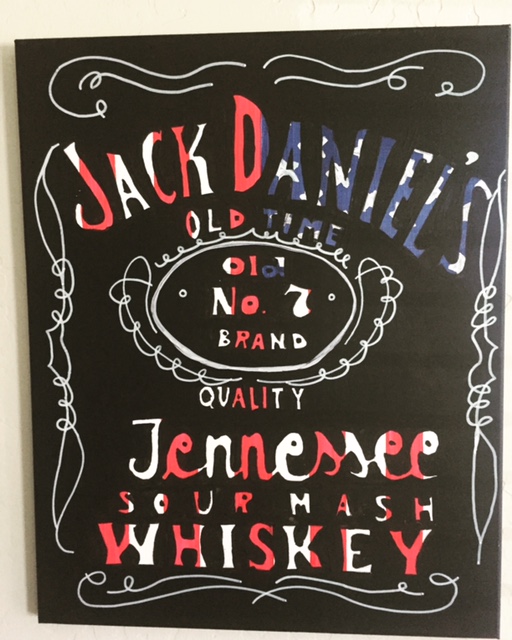 JACK DANIEL'S
OLD TIME
Old
No. 7
BRAND
QUALITY
Jennessee
SOUR MASH
WHISKEY